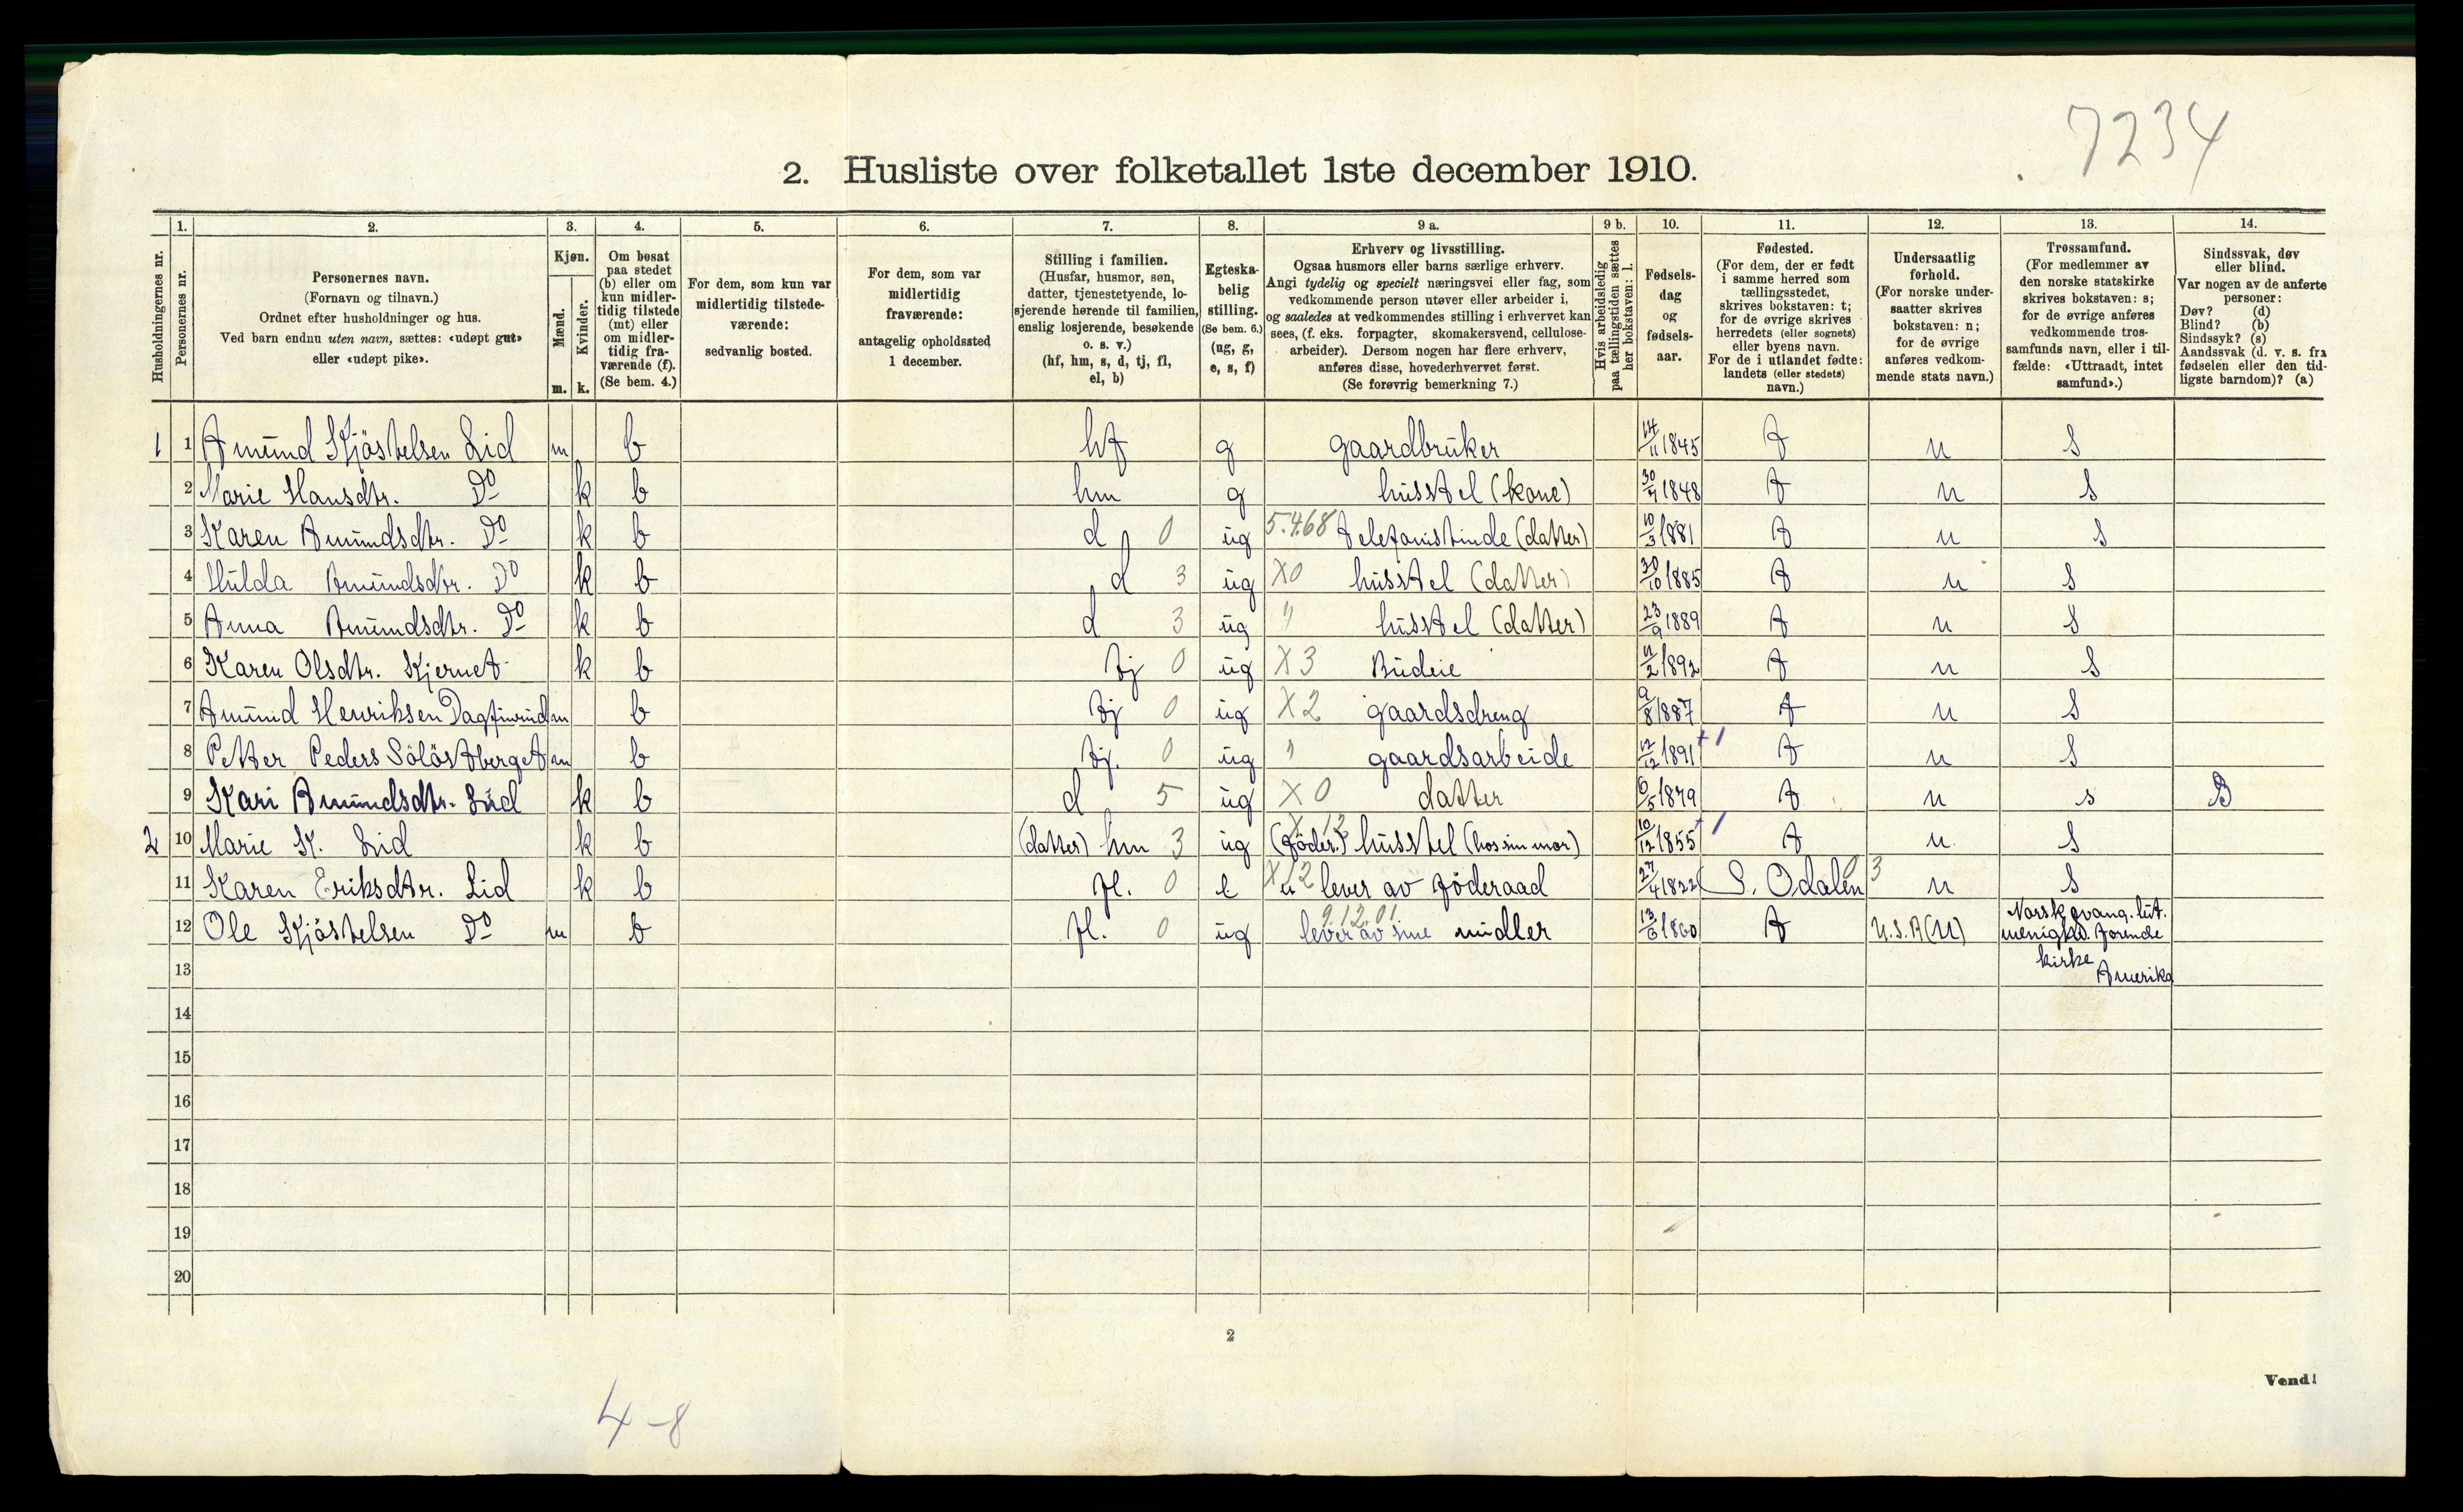 7234
2. Husliste over folketallet 1ste december 1910.
Husholdningernes nr.
1.
Personernes nr.
2.
Personernes navn.
(Fornavn og tilnavn.)
Ordnet efter husholdninger og hus.
Ved barn endnu uten navn, sættes: «udøpt gut»
eller «udøpt pike».
3.
Kjøn.
Mænd.
Kvinder.
m. k.
4.
Om bosat
paa stedet
(b) eller om
kun midler-
tidig tilstede
(mt) eller
om midler-
tidig fra-
værende (f).
(Se bem. 4.)
5.
For dem, som kun var
midlertidig tilstede-
værende:
sedvanlig bosted.
6.
For dem, som var
midlertidig
fraværende:
antagelig opholdssted
1 december.
7.
Stilling i familien.
(Husfar, husmor, søn,
datter, tjenestetyende, lo-
sjerende hørende til familien,
enslig losjerende, besøkende
o. s. v.)
(hf, hm, s, d, tj, fl,
el, b)
8.
Egteska-
belig
stilling.
(Se bem. 6.)
(ug, g,
e, s, f)
9 a.
Erhverv og livsstilling.
Ogsaa husmors eller barns særlige erhverv.
Angi tydelig og specielt næringsvei eller fag, som
vedkommende person utøver eller arbeider i,
og saaledes at vedkommendes stilling i erhvervet kan
sees, (f. eks. forpagter, skomakersvend, cellulose-
arbeider). Dersom nogen har flere erhverv,
anføres disse, hovederhvervet først.
(Se forøvrig bemerkning 7.)
9 b.
Hvis arbeidsledig
paa tællingstiden sættes
her bokstaven: l.
10.
Fødsels-
dag
og
fødsels-
aar.
11.
Fødested.
(For dem, der er født
i samme herred som
tællingsstedet,
skrives bokstaven: t;
for de øvrige skrives
herredets (eller sognets)
eller byens navn.
For de i utlandet fødte:
landets (eller stedets)
navn.)
12.
Undersaatlig
forhold.
(For norske under-
saatter skrives
bokstaven: n;
for de øvrige
anføres vedkom-
mende stats navn.)
13.
Trossamfund.
(For medlemmer av
den norske statskirke
skrives bokstaven: s;
for de øvrige anføres
vedkommende tros-
samfunds navn, eller i til-
fælde: «Uttraadt, intet
samfund».)
14.
Sindssvak, døv
eller blind.
Var nogen av de anførte
personer:
Døv? (d)
Blind? (b)
Sindssyk? (s)
Aandssvak (d. v. s. fra
fødselen eller den tid-
ligste barndom)? (a)
1 1 Amund Kjöstelsen Lid m b hf g gaardbruker 14/11 1845 t n s
2 Marie Hansdtr. Do k b hm g husstel (kone) 30/7 1848 t n s
3 Karen Amundsdtr. Do k b d 0 ug 5.468 telefonistinde (datter) 10/3 1881 t n s
4 Hulda Amundsdtr. Do k b d 3 ug X0 husstel (datter) 30/10 1885 t n s
5 Anna Amundsdtr. Do k b d 3 ug " husstel (datter) 23/9 1889 t n s
6 Karen Olsdtr. Kjernet k b tj 0 ug X3 Budeie 11/2 1892 t n s
7 Amund Henriksen Dagfinrud m b tj 0 ug X2 gaardsdreng 9/8 1887 t n s
8 Petter Peders Sölöstberget m b tj. 0 ug " gaardsarbeide 12/12 1891 +1 t n s
9 Kari Amundsdtr. Lid k b d 5 ug X0 datter 6/5 1879 t n s B
2 10 Marie K. Lid k b (datter) hm 3 ug X 12 (föder.) husstel (hos sin mor) 10/12 1855 +1 t n. s
11 Karen Eriksdtr. Lid k b fl. 0 e X12 lever av föderaad 27/4 1822 S. Odalen 03 n s
12 Ole Kjöstelsen Do m b fl. 0 ug 9.12.01 lever av sine midler 13/6 1860 t U.S.A (U) Norsk evang. lut.
menigh. forende
13 kirke
Amerika
14
15
16
17
18
19
20
2
Vend!
4-8